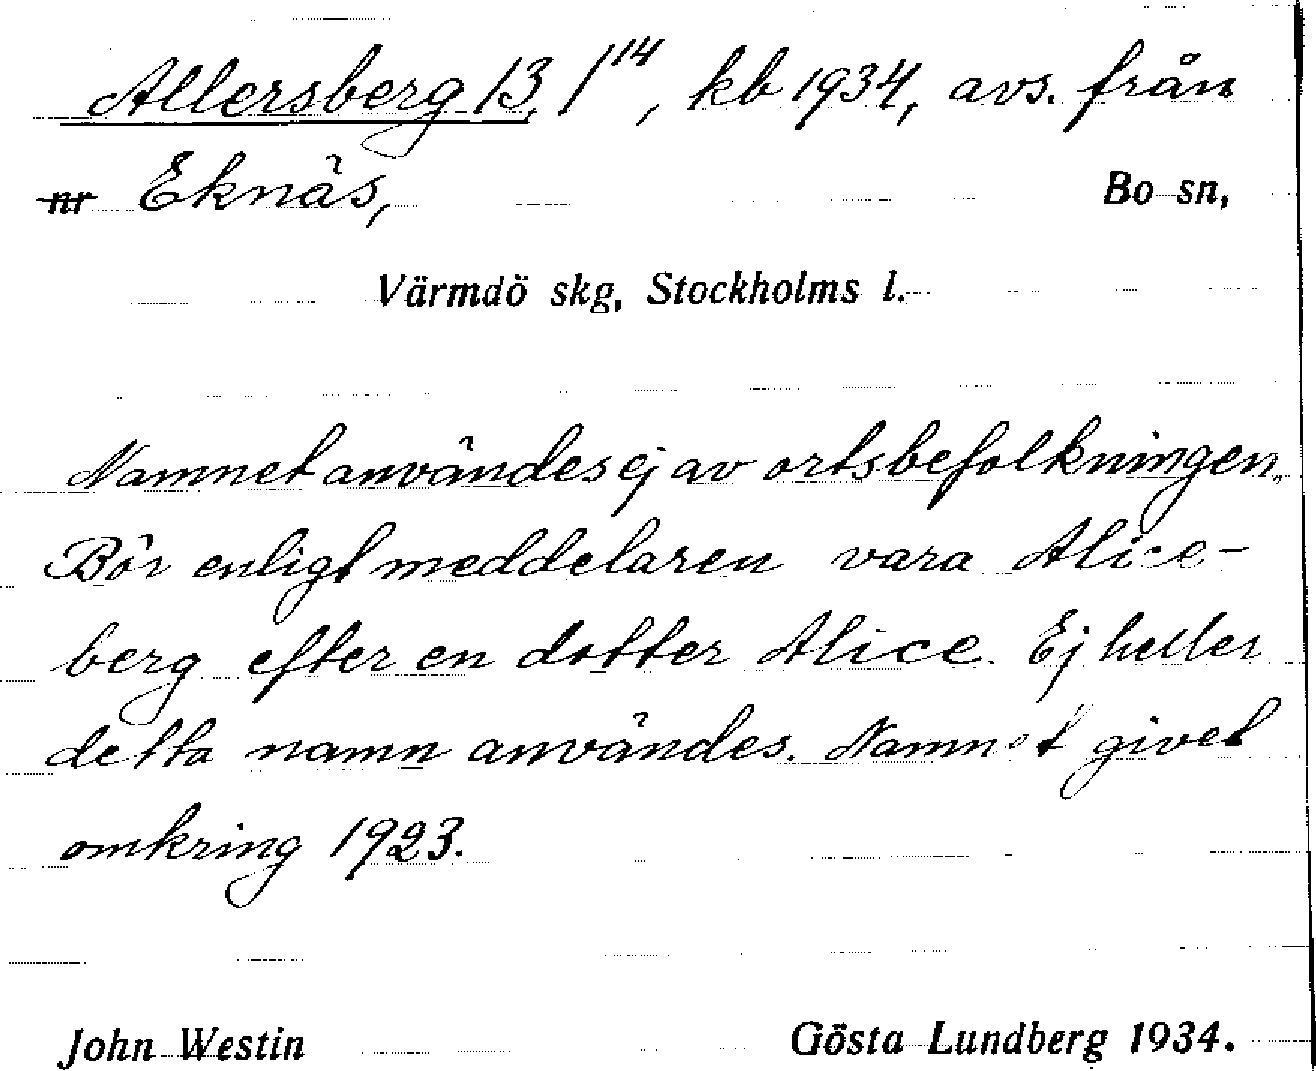 Allersberg 13, 1¹⁴, kb 1934, avs. från
nr Eknäs, Bo sn,
Värmdö skg, Stockholms l.
Namnet användes ej av ortsbefolkningen.
Bör enligt meddelaren vara Alice-
berg efter en dotter Alice. Ej heller
detta namn användes. Namnet givet
omkring 1923.
John Westin Gösta Lundberg 1934.